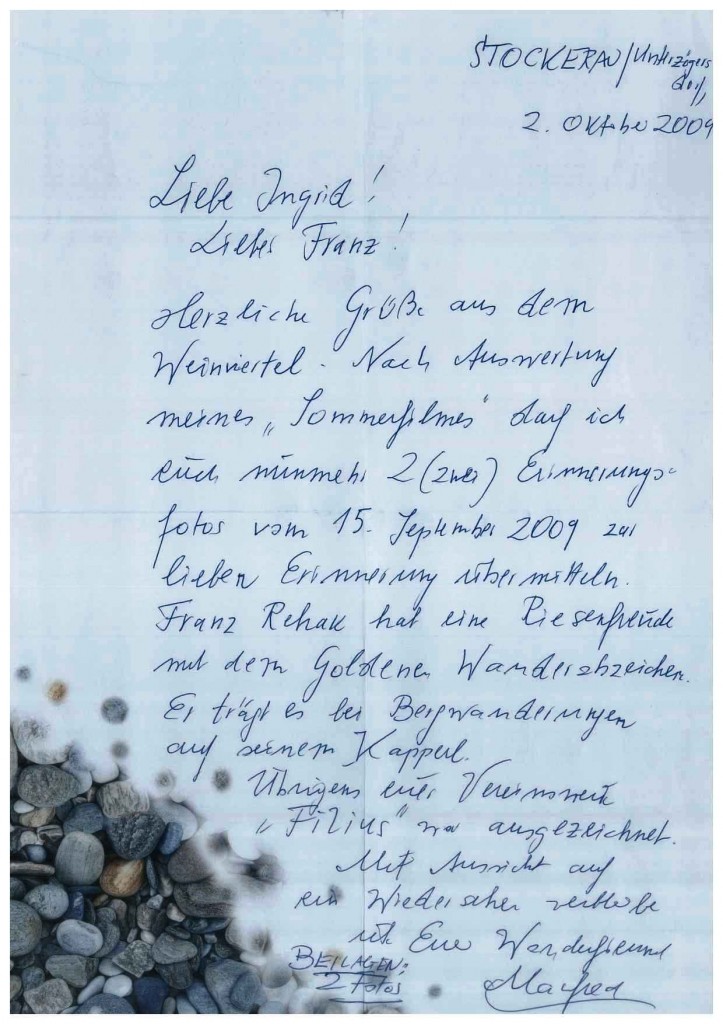 STOCKERAU/Unterzögers
dorf,
2. Oktober 2009
Liebe Ingrid!
Lieber Franz!
Herzliche Grüße aus dem
Weinviertel. Nach Auswertung
meines „Sommerfilmes“ darf ich
euch nunmehr 2 (zwei) Erinnerungs-
fotos vom 15. September 2009 zur
lieben Erinnerung übermitteln.
Franz Rehak hat eine Riesenfreude
mit dem Goldenen Wanderabzeichen.
Er trägt es bei Bergwanderungen
auf seinem Kapperl.
Übrigens euer
„Filius“ war ausgezeichnet.
Mit Aussicht auf
ein Wiedersehen verbleibe
ich Euer Wanderfreund
BEILAGEN: Manfred
2 Fotos